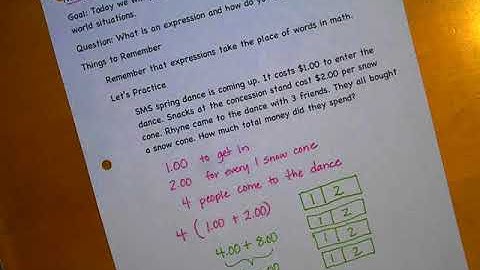 Goal: Today we will
world situations.
Question: What is an expression and how do yo
Things to Remember
Remember that expressions take the place of words in math.
Let's Practice
SMS spring dance is coming up. It costs $1.00 to enter the
dance. Snacks at the concession stand cost $2.00 per snow
cone. Rhyne came to the dance with 3 friends. They all bought
a snow cone. How much total money did they spend?
1.00 to get in
2.00 for every 1 snow cone
4 people come to the dance
4 (1.00 + 2.00)
1 2
4.00 + 8.00
1 2
1 2
1 2